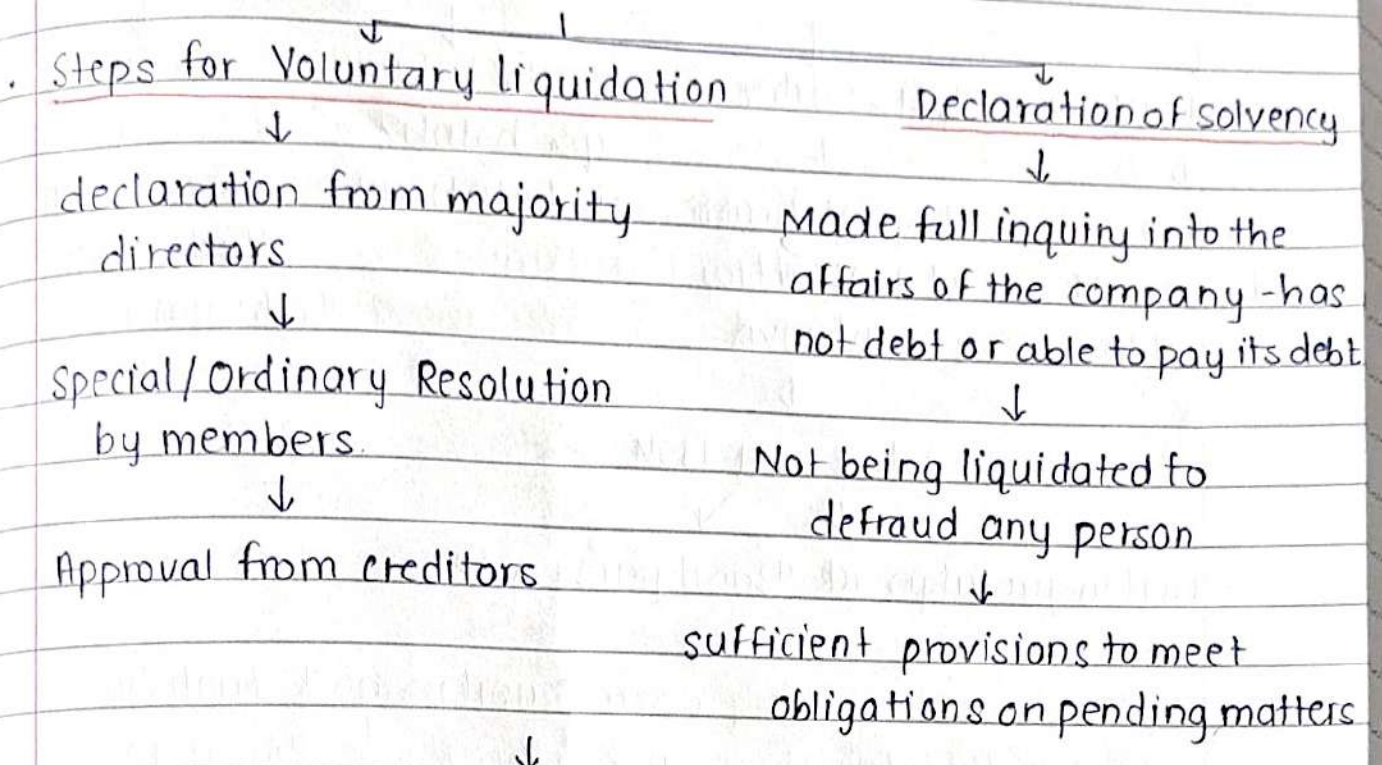 Steps for Voluntary liquidation
↓
declaration from majority
directors
↓
Special/Ordinary Resolution
by members.
↓
Approval from creditors
Declaration of solvency
↓
Made full inquiry into the
affairs of the company - has
not debt or able to pay its debt
↓
Not being liquidated to
defraud any person
↓
sufficient provisions to meet
obligations on pending matters
↓